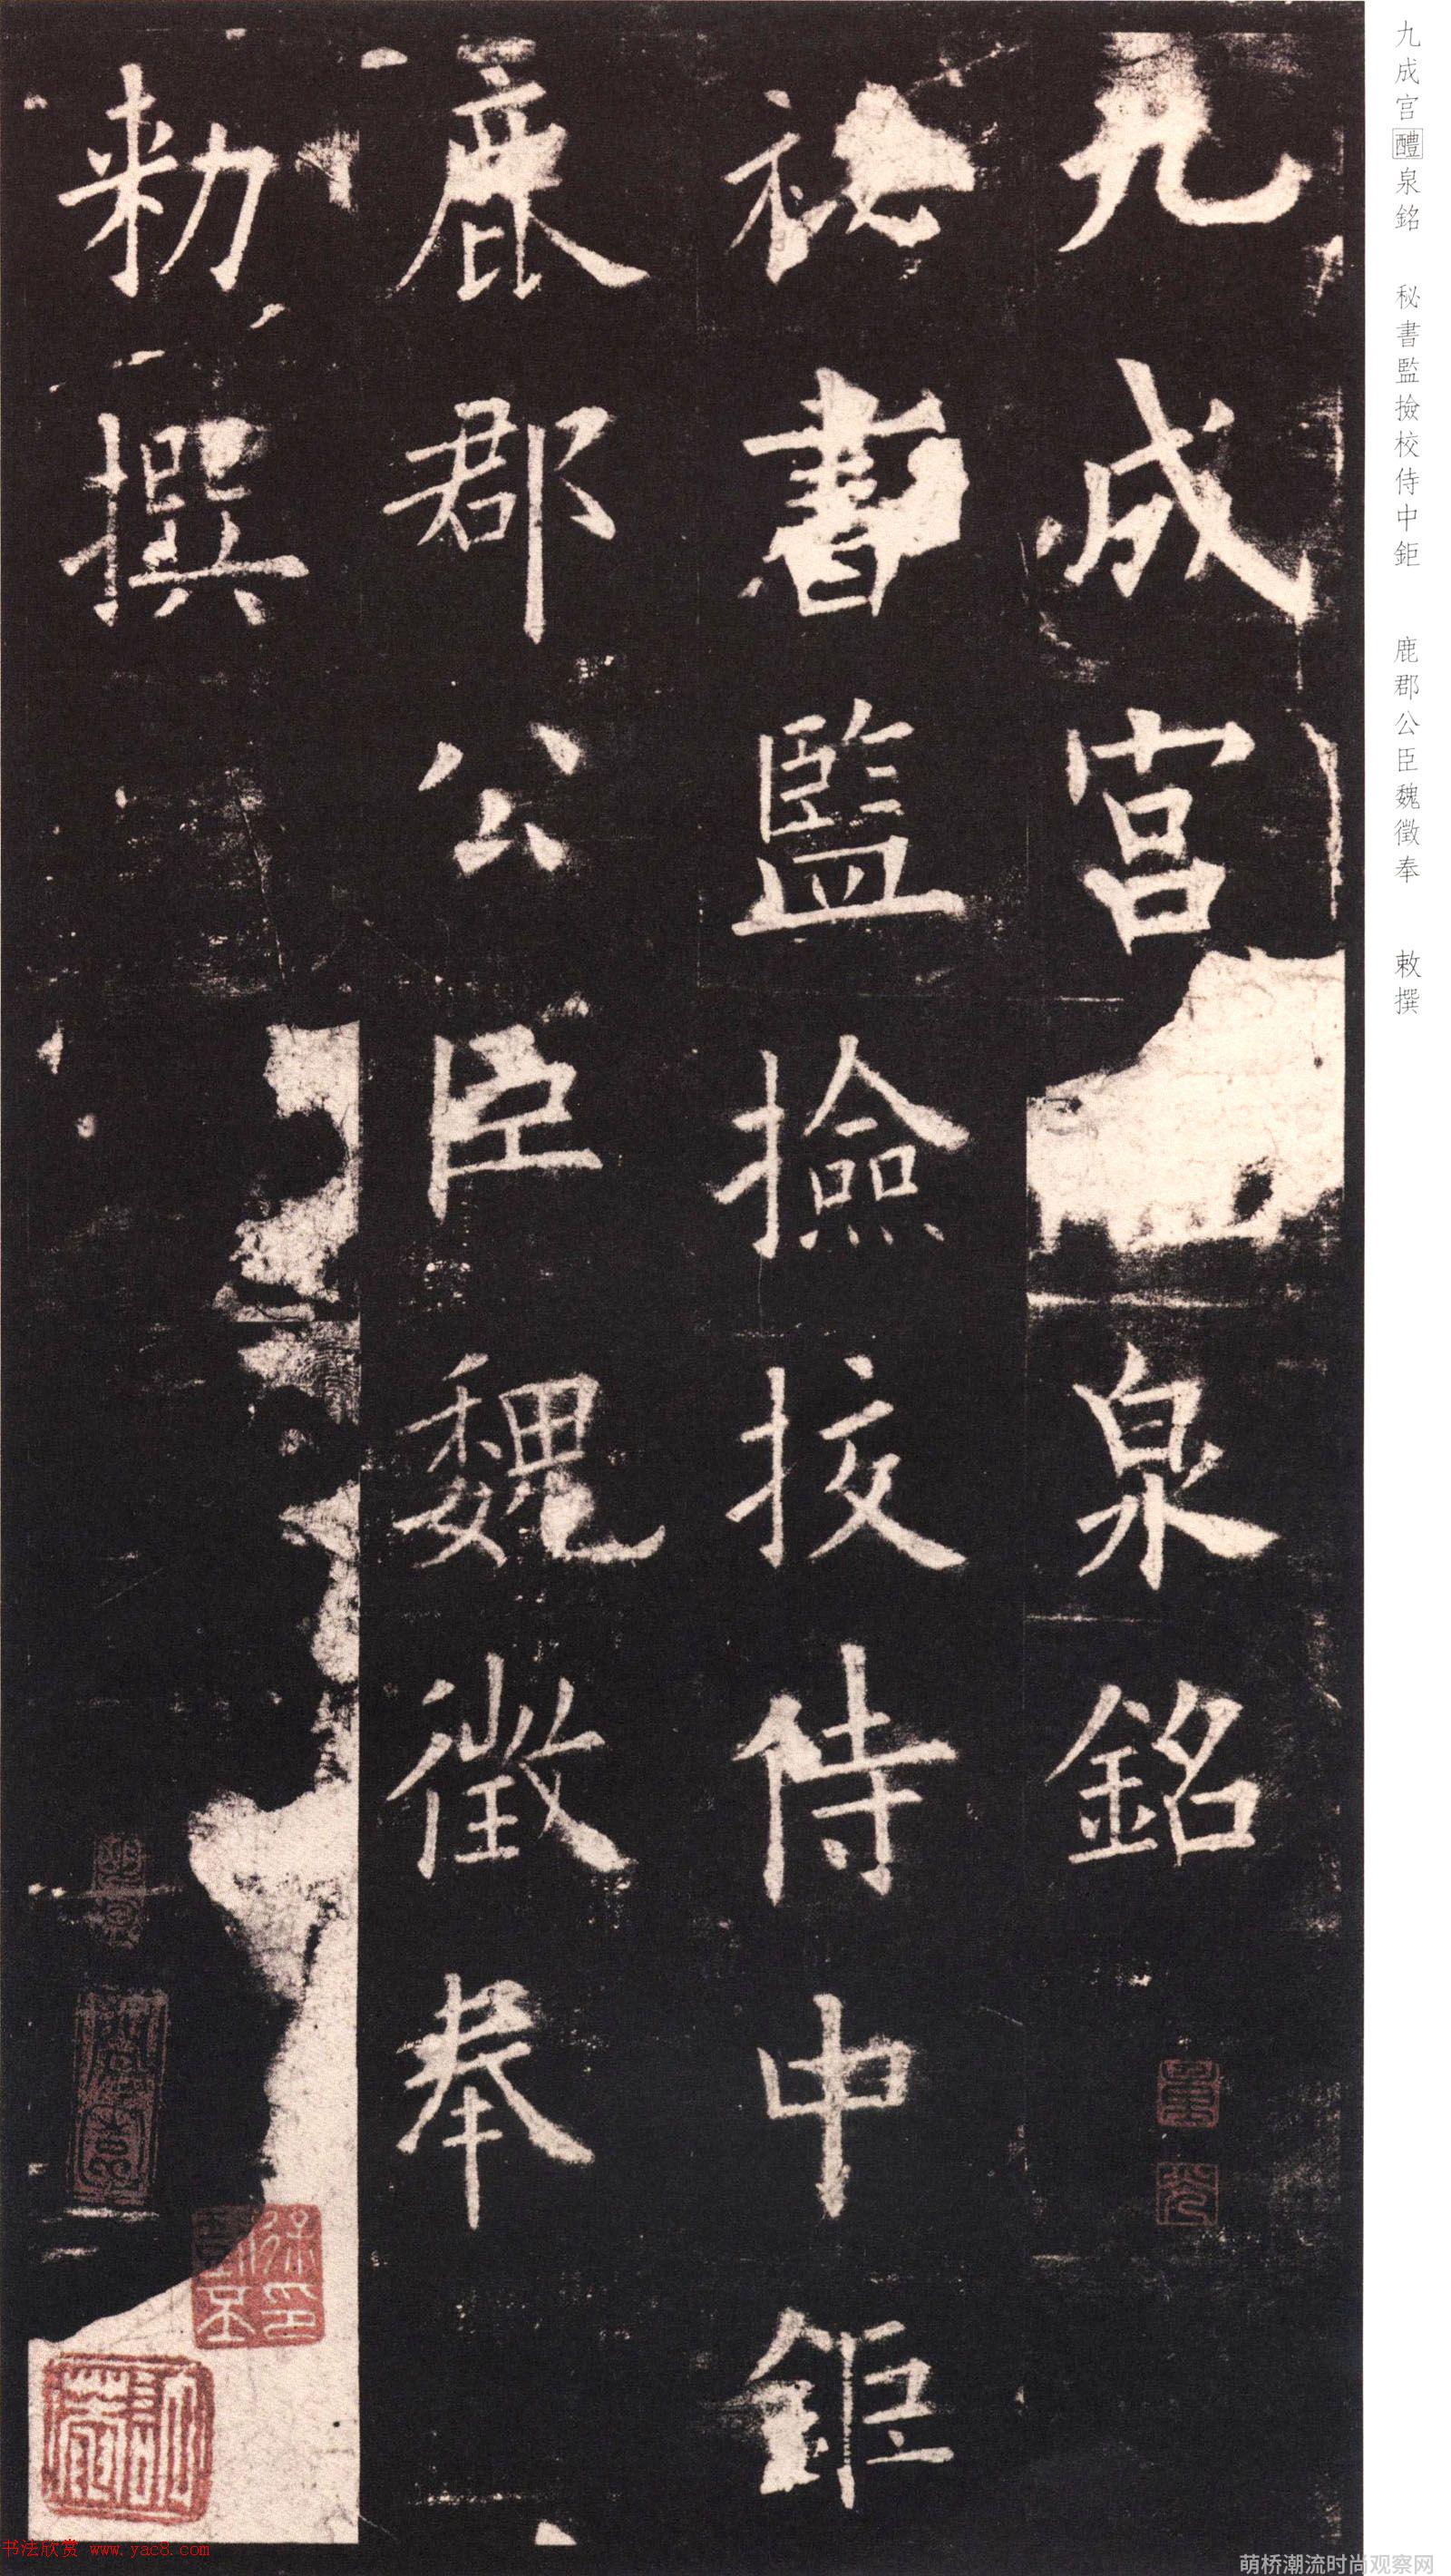 九成宮醴泉銘 秘書監撿校侍中鉅 鹿郡公臣魏徵奉 敕撰
九成宮泉銘
祕書監撿挍侍中鉅
鹿郡公臣魏徵奉
勑撰
书法欣赏 www.yac8.com
萌桥潮流时尚观察网